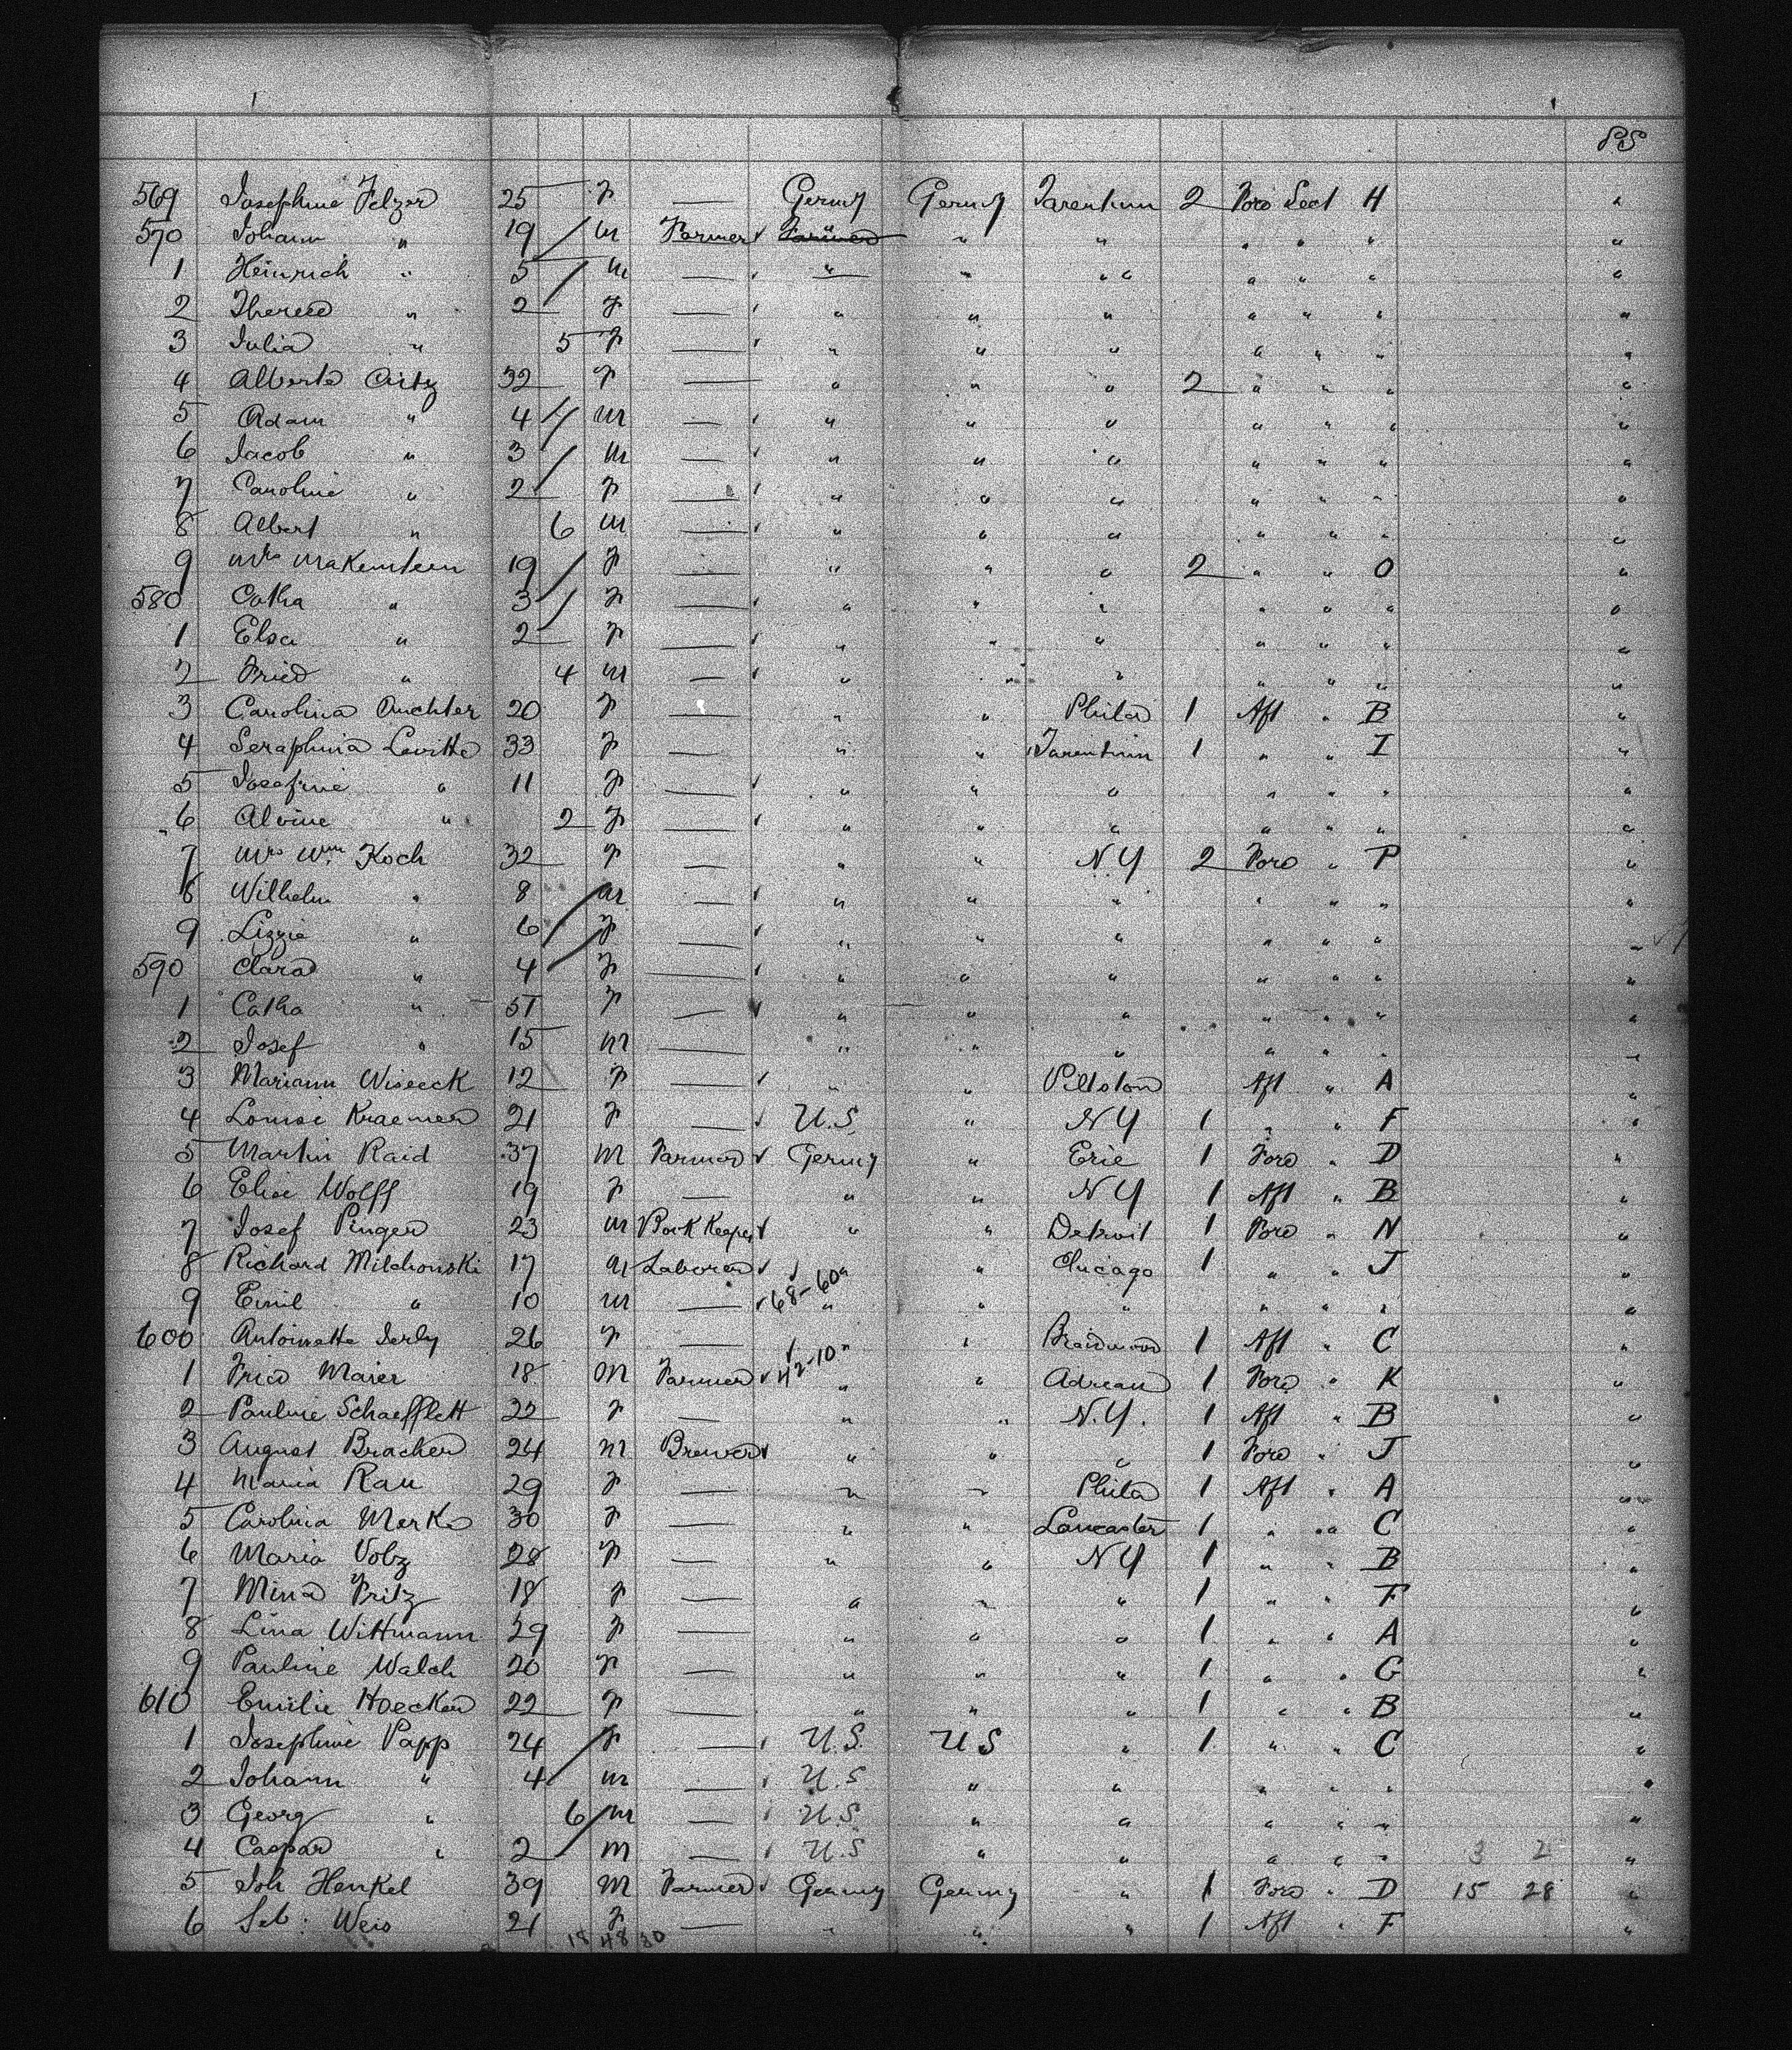 PS
569 Josephine Felzer 25 F — Germy Germy Tarentum 2 Forw Sect H "
570 Johann " 19 M Farmer " " " " " " "
1 Heinrich " 5 M — " " " " " " "
2 Therese " 2 F — " " " " " " "
3 Julia " 5 F — " " " " " " "
4 Alberte 32 F — " " " 2 " " " "
5 Adam " 4 M — " " " " " " "
6 Jacob " 3 M — " " " " " " "
7 Caroline " 2 F — " " " " " " "
8 Albert " 6 M — " " " " " " "
9 Mrs Makemteen 19 F — " " " 2 " " O "
580 Catha " 3 F — " " " " " " "
1 Elsa " 2 F — " " " " " " "
2 Fried " 4 M — " " " " " " "
3 Carolina Auchter 20 F — " " Phila 1 Aft " B "
4 Seraphina Levitte 33 F — " " Tarentum 1 " " I "
5 Josefine " 11 F — " " " " " " "
6 Alvine " 2 F — " " " " " " "
7 Mrs Wm Koch 32 F — " " N.Y 2 Forw " P "
8 Wilhelm " 8 M — " " " " " " "
9 Lizzie " 6 F — " " " " " " "
590 Clara " 4 F — " " " " " " "
1 Catha " 57 F — " " " " " " "
2 Josef " 15 M — " " " " " " "
3 Mariann Wiseeck 12 F — " " Pittston Aft " A "
4 Louise Kraemer 21 F — U.S. " N.Y 1 " " F "
5 Martin Raid 37 M Farmer Germy " Erie 1 Forw " D "
6 Elise Wolff 19 F — " " N.Y 1 Aft " B "
7 Josef Pinger 23 M Book Keeper " " Detroit 1 Forw " N "
8 Richard Milchowski 17 M Laborer " " Chicago 1 " " J "
9 Emil " 10 M — 68-60 " " " " " " "
600 Antoinette Serly 26 F — " " Braidwood 1 Aft " C "
1 Fried Maier 18 M Farmer 42-10 " " Adrean 1 Forw " K "
2 Pauline Schaefflett 22 F — " " N.Y. 1 Aft " B "
3 August Bracher 24 M Brewer " " " 1 Forw " J "
4 Maria Rau 29 F — " " Phila 1 Aft " A "
5 Carolina Merke 30 F — " " Lancaster 1 " " C "
6 Maria Volz 28 F — " " N.Y 1 " " B "
7 Mina Fritz 18 F — " " " 1 " " F "
8 Lina Wittmann 29 F — " " " 1 " " A "
9 Pauline Walch 20 F — " " " 1 " " G "
610 Emilie Hoecker 22 F — " " " 1 " " B "
1 Josephine Papp 24 F — U.S. U S " 1 " " C "
2 Johann " 4 M — U.S " " " " " "
3 Georg " 6 M — U.S " " " " " "
4 Caspar " 2 M — U.S " " " " " 3 2 "
5 Joh Henkel 39 M Farmer Germy Germy " 1 Forw " D 15 28 "
6 Seb: Weis 21 F — " " " 1 Aft " F "
18 48 30